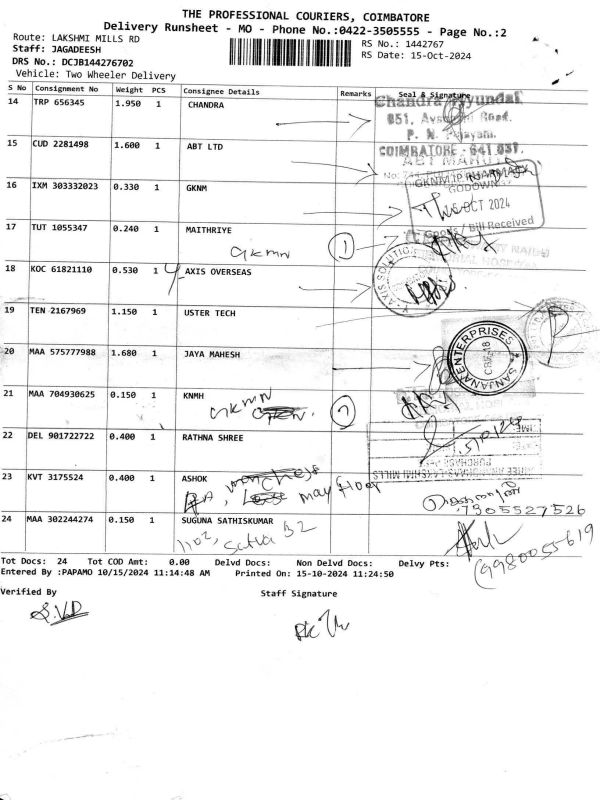 THE PROFESSIONAL COURIERS, COIMBATORE
Delivery Runsheet - MO - Phone No.:0422-3505555 - Page No.:2
Route: LAKSHMI MILLS RD
RS No.: 1442767
Staff: JAGADEESH
RS Date: 15-Oct-2024
DRS No.: DCJB144276702
Vehicle: Two Wheeler Delivery
S No Consignment No Weight PCS Consignee Details Remarks Seal & Signature
14 TRP 656345 1.950 1 CHANDRA
Chandra Hyundai
851, Road,
P. N. Palayam,
COIMBATORE - 641 037.
15 CUD 2281498 1.600 1 ABT LTD
ABT MARUTI
16 IXM 303332023 0.330 1 GKNM
GKNM IP PHARMACY
GODOWN
OCT 2024
Goods / Bill Received
17 TUT 1055347 0.240 1 MAITHRIYE
GKMN
1
18 KOC 61821110 0.530 1 AXIS OVERSEAS
AXIS SOLUTION
19 TEN 2167969 1.150 1 USTER TECH
20 MAA 575777988 1.680 1 JAYA MAHESH
SANJANA ENTERPRISES
CBE-18
21 MAA 704930625 0.150 1 KNMH
GKMN
22 DEL 901722722 0.400 1 RATHNA SHREE
LAKSHMI MILLS
PURCHASE
TIME
23 KVT 3175524 0.400 1 ASHOK
may floor
7305527526
24 MAA 302244274 0.150 1 SUGUNA SATHISKUMAR
1102, Satva B2
(9980055619
Tot Docs: 24 Tot COD Amt: 0.00 Delvd Docs: Non Delvd Docs: Delvy Pts:
Entered By :PAPAMO 10/15/2024 11:14:48 AM Printed On: 15-10-2024 11:24:50
Verified By Staff Signature
S.V.D